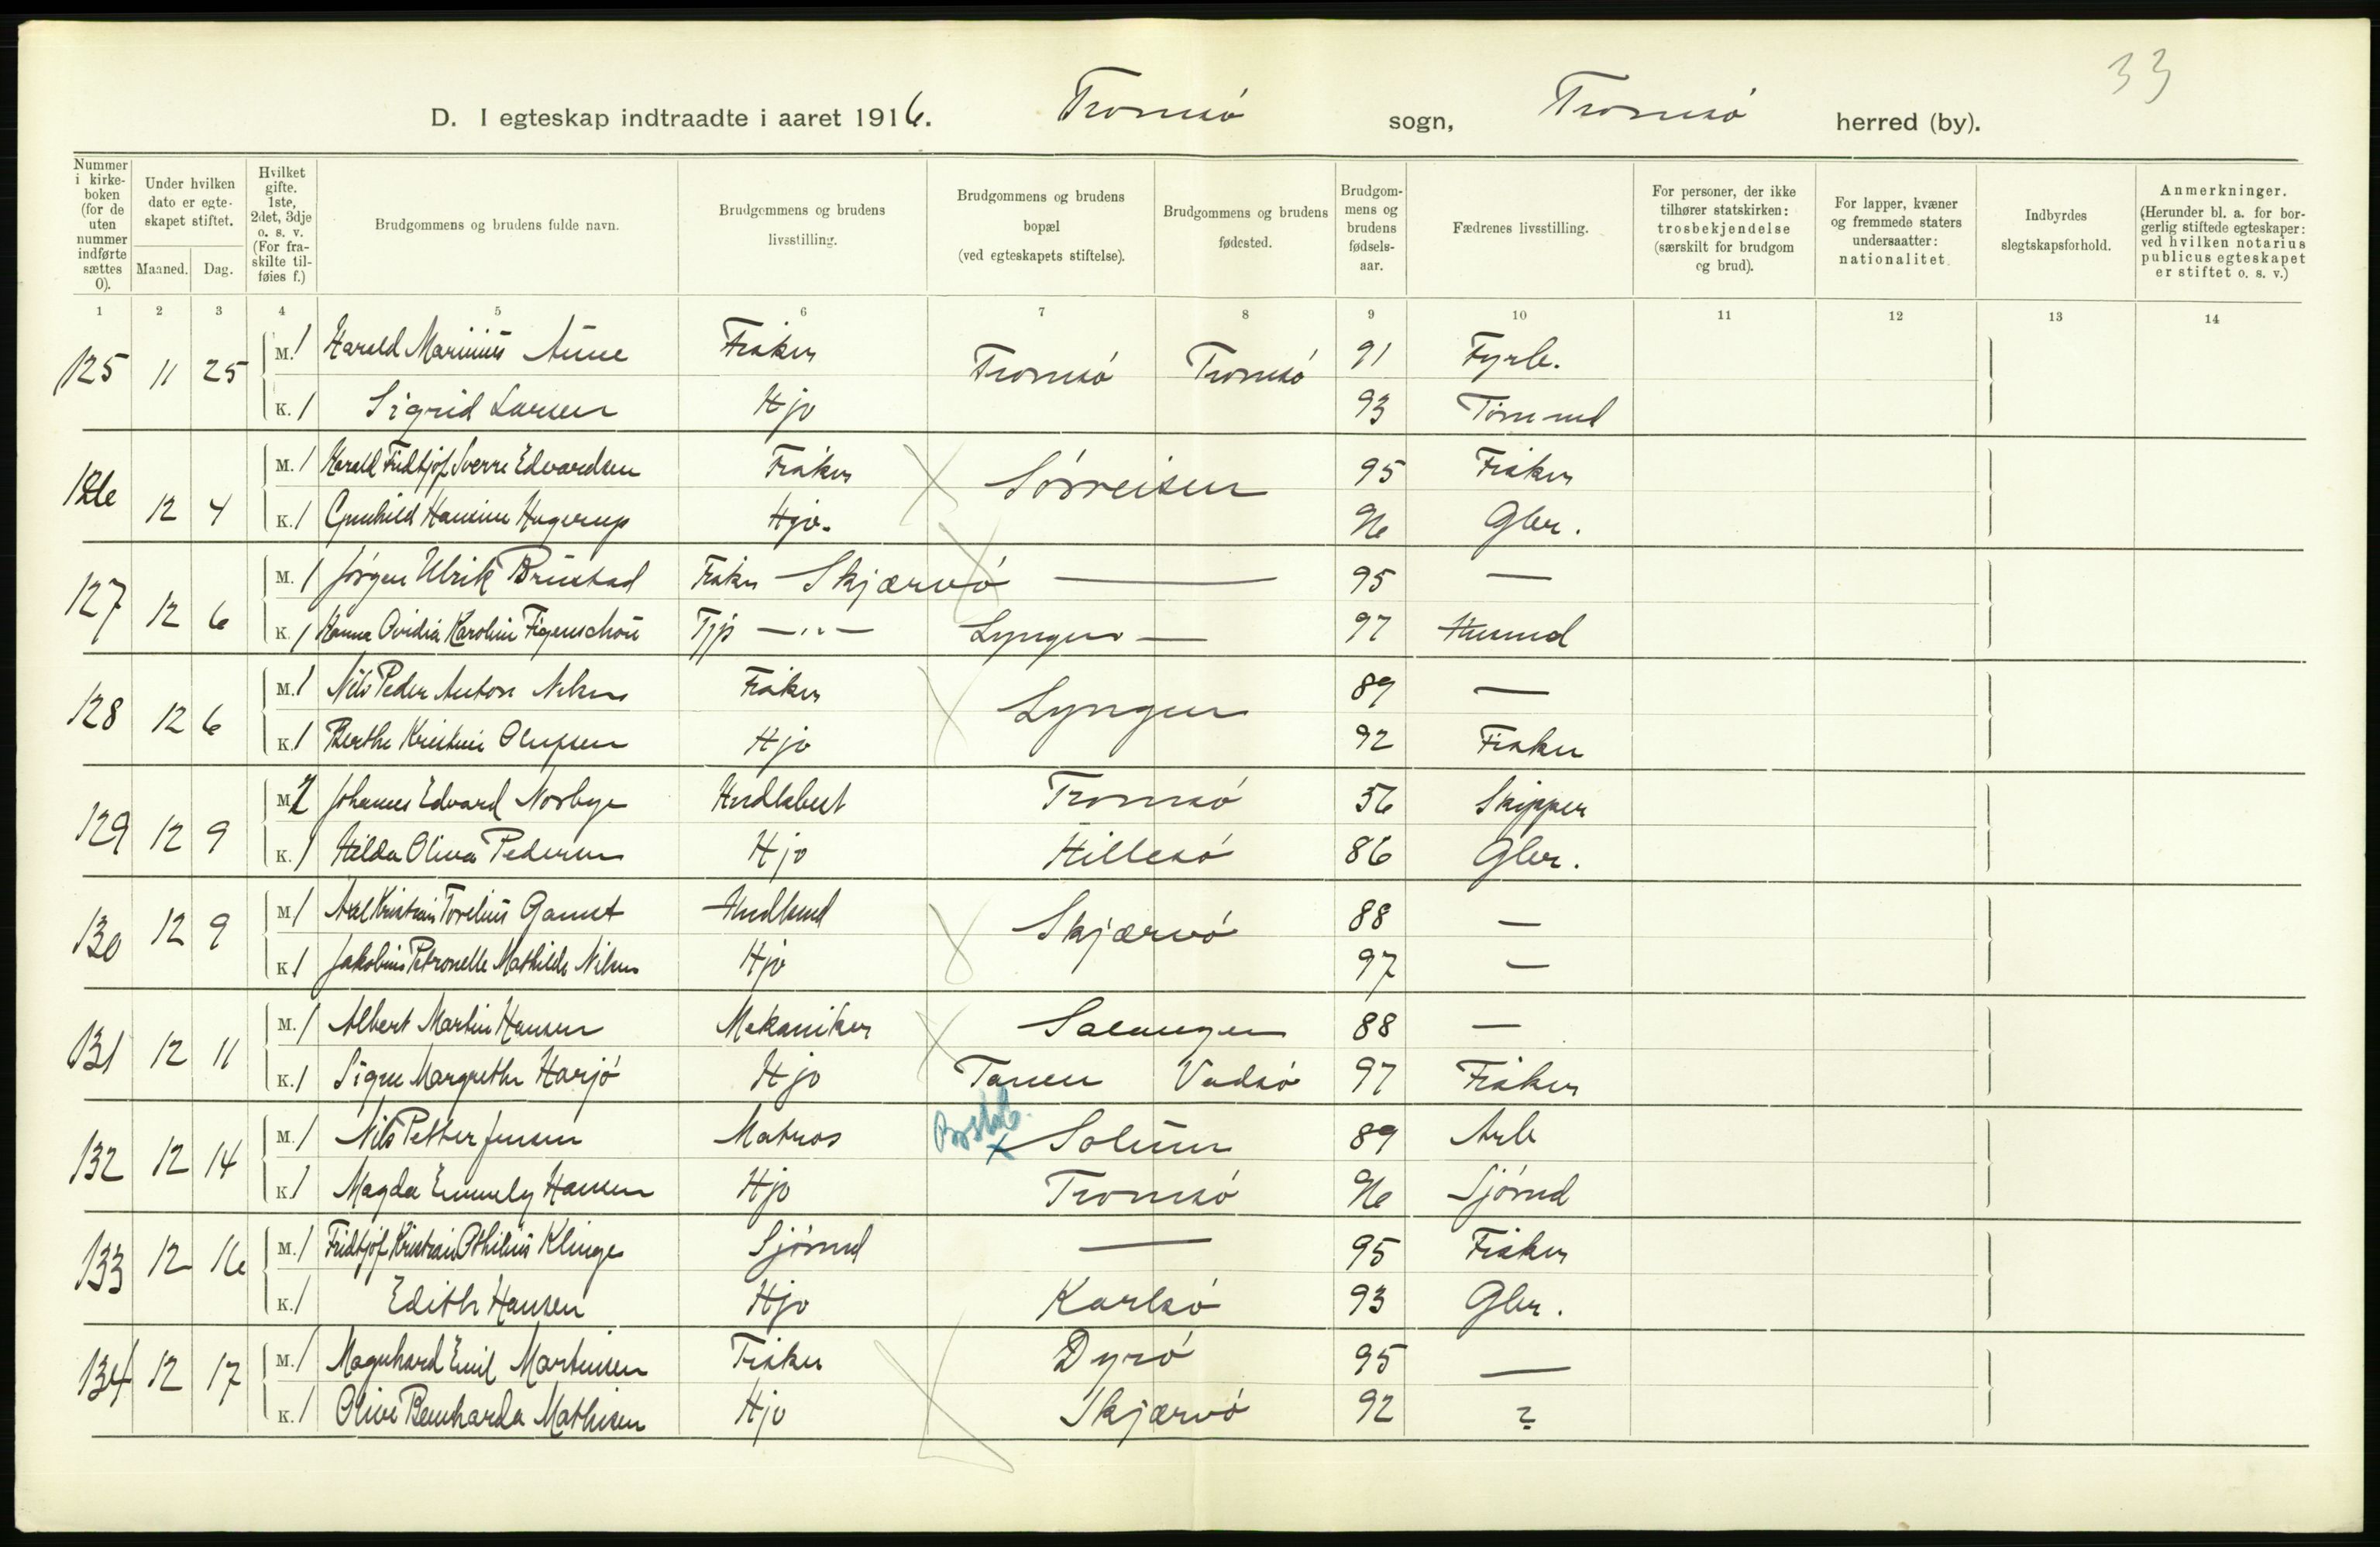 33
D. I egteskap indtraadte i aaret 1916. Tromsö sogn, Tromsö herred (by).
Nummer i kirke-boken (for de uten nummer indførte sættes 0).
Under hvilken dato er egte-skapet stiftet.
Maaned. Dag.
Hvilket gifte. 1ste, 2det, 3dje o. s. v. (For fra-skilte til-føies f.)
Brudgommens og brudens fulde navn.
Brudgommens og brudens livsstilling.
Brudgommens og brudens bopæl (ved egteskapets stiftelse).
Brudgommens og brudens fødested.
Brudgom-mens og brudens fødsels-aar.
Fædrenes livsstilling.
For personer, der ikke tilhører statskirken: trosbekjendelse (særskilt for brudgom og brud).
For lapper, kvæner og fremmede staters undersaatter: nationalitet.
Indbyrdes slegtskapsforhold.
Anmerkninger. (Herunder bl. a. for bor-gerlig stiftede egteskaper: ved hvilken notarius publicus egteskapet er stiftet o. s. v.)
1 2 3 4 5 6 7 8 9 10 11 12 13 14
125 11 25 M. 1 Harald Marinius Aune Fisker Tromsö Tromsö 91 Fyrb.
K. 1 Sigrid Larsen Hjo 93 Tömmd
126 12 4 M. 1 Harald Fridtjof Sverre Edvardsen Fisker Sörreisen 95 Fisker
K. 1 Gunhild Hansine Hagerup Hjo. 96 Gbr.
127 12 6 M. 1 Jörgen Ulrik Brustad Fisker Skjærvö — 95 —
K. 1 Hanna Ovidia Karoline Figenschou Tjp —"— Lyngen — 97 Husmd
128 12 6 M. 1 Nils Peder Anton Nilsen Fisker Lyngen 89 —
K. 1 Berthe Kristine Olufsen Hjo 92 Fisker
129 12 9 M. 2 Johannes Edvard Norbye Hndlsbest Tromsö 56 Skipper
K. 1 Hilda Oliva Pedersen Hjo Hillesö 86 Gbr.
130 12 9 M. 1 Axel Kristian Torelius Gamst Hndlsmd Skjærvö 88 —
K. 1 Jakobine Petronelle Mathilde Nilsen Hjo 97 —
131 12 11 M. 1 Albert Martin Hansen Mekaniker Salangen 88 —
K. 1 Signe Margrethe Harjö Hjo Tanen Vadsö 97 Fisker
132 12 14 M. 1 Nils Petter Jensen Matros x Solum 89 Arb
K. 1 Magda Emmely Hansen Hjo Tromsö 96 Sjömd
133 12 16 M. 1 Fridtjof Kristian Othilius Klinge Sjömd — 95 Fisker
K. 1 Edith Hansen Hjo Karlsö 93 Gbr.
134 12 17 M. 1 Magnhard Emil Martinsen Fisker Dyrö 95 —
K. 1 Olive Bernharda Mathisen Hjo Skjærvö 92 ?